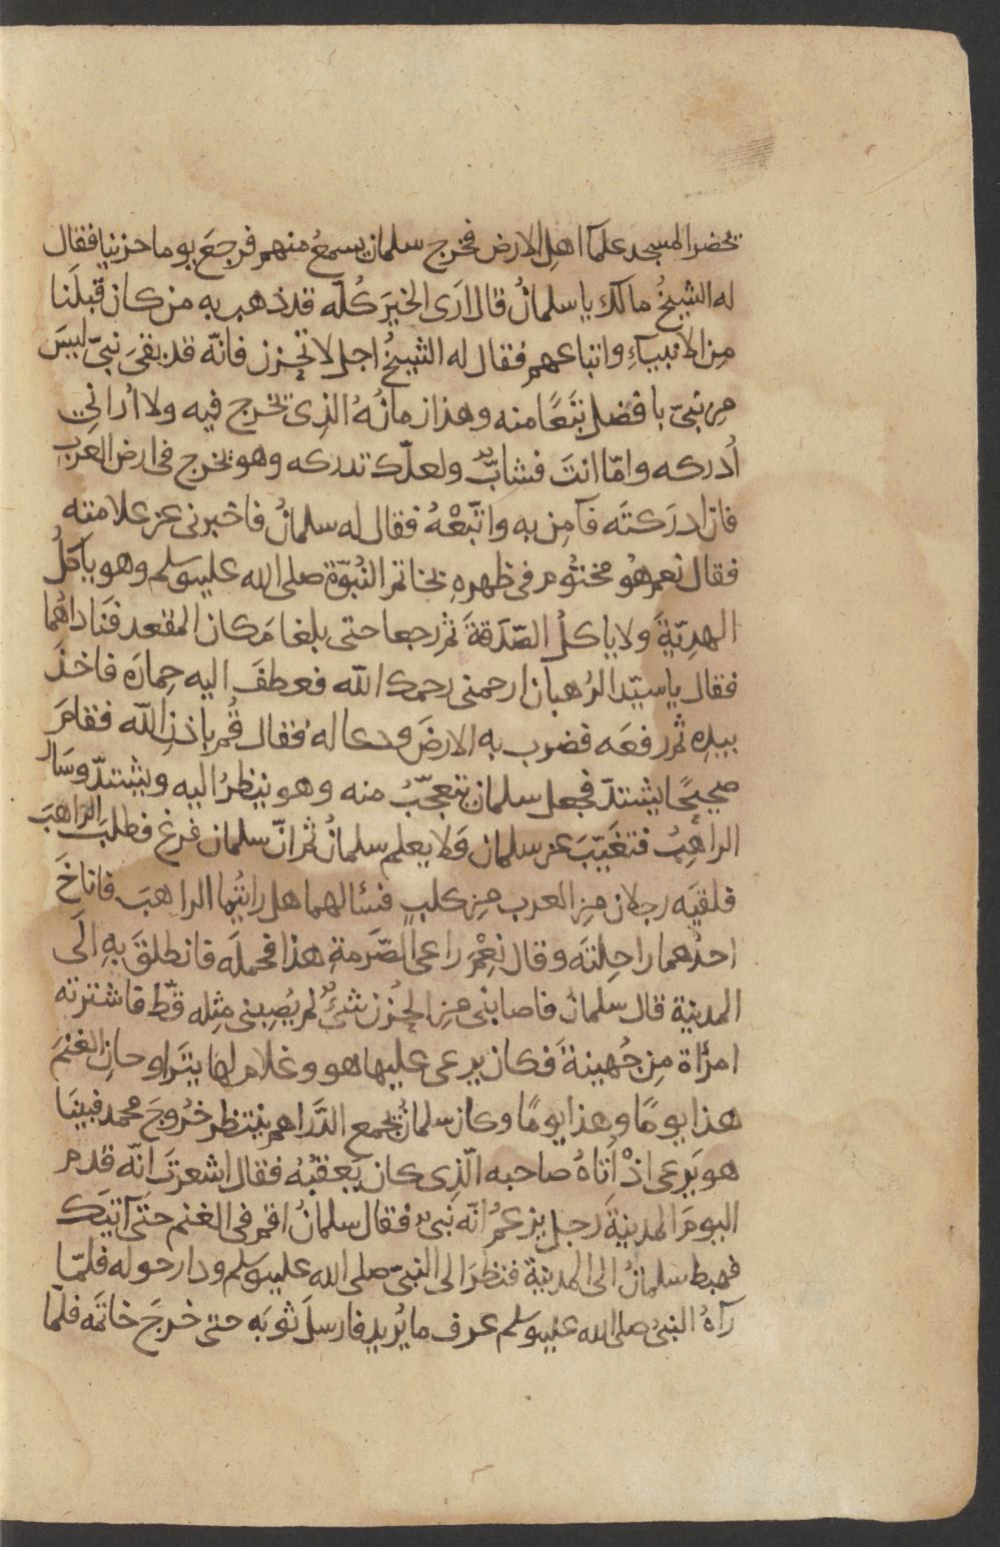 يحضر المسجد علمآا اهل الارض فخرج سلمان يسمع منهم فرجع يوما حزينا فقال
له الشيخُ مالك يا سلمانُ قال ارَى الخيرَ كُلّه قد ذهب به من كان قبلَنا
مِن الانبيآءِ واتباعهم فقال له الشيخُ اجل لا تحزن فانّه قد بقىَ نبىّ ليسَ
من نبىّ بافضل تبَعًا منه وهذا زمانُهُ الذِى يخرج فيه ولا اُرانِى
اُدركه وامّا انتَ فشابٌّ ولعلّك تدركه وهو يخرج فى ارض العرب
فان ادرَكتَه فآمِن به واتّبعْهُ فقال له سلمانُ فاخبرنى عن علامته
فقال نعم هُو مختُوم فى ظهرهِ بخاتم النُبوّة صلى الله عليه وسلم وهو ياكلُ
الهدِيّةَ ولا ياكلُ الصّدَقةَ ثم رجعا حتى بلغا مَكان المقعد فنَاداهُما
فقال يا سيّد الرُهبان ارحمنى رحمك الله فعطفَ اليه حِمارَه فاخذَ
بيدِه ثم رفعَه فضرب به الارضَ ودعا له فقال قُم باذنِ الله فقامَ
صحيحًا يشتدّ فجعل سلمان يتعجّبُ منه وهو ينظرُ اليه ويشتدّ وسَار
الراهبُ فتغَيّبَ عن سلمان وَلا يعلم سلمانُ ثم انّ سلمان فرغ فطلبَ الراهبَ
فلقيَه رجلان مِن العرب مِن كلبٍ فسئالهما هل رايتُما الراهبَ فاناخَ
احدُهما راحِلتَه وقال نِعْمَ راعى الصّرمةِ هذا فحملَه فانطلقَ بهِ الَى
المدينة قال سلمانُ فاصابنى مِن الحُزن شئٌ لم يُصِبنى مِثله قطّ فاشترته
امرأة مِن جُهينةَ فكان يرعى عليها هو وغلام لهَا يتَراوحانِ الغنمَ
هذا يومًا وهذا يومًا وكان سلمانُ يجمع الدّراهم ينتظر خرُوجَ محمد فبينَا
هو يَرعى اذْ اتاهُ صاحبه الّذِى كان يَعقبُهُ فقال اشعرتَ انّه قدم
اليومَ المدينةَ رجل يزعمُ انّه نبىٌ فقال سلمانُ اقم فى الغنم حتّى آتيَك
فهبط سلمانُ الى المدينة فنظرَ الى النبىّ صلى الله عليه وسلم ودار حوله فلمّا
رآهُ النبىُ صلى الله عليه وسلم عرف ما يُريد فارسلَ ثوبَه حتى خرجَ خاتَمه فلمّا